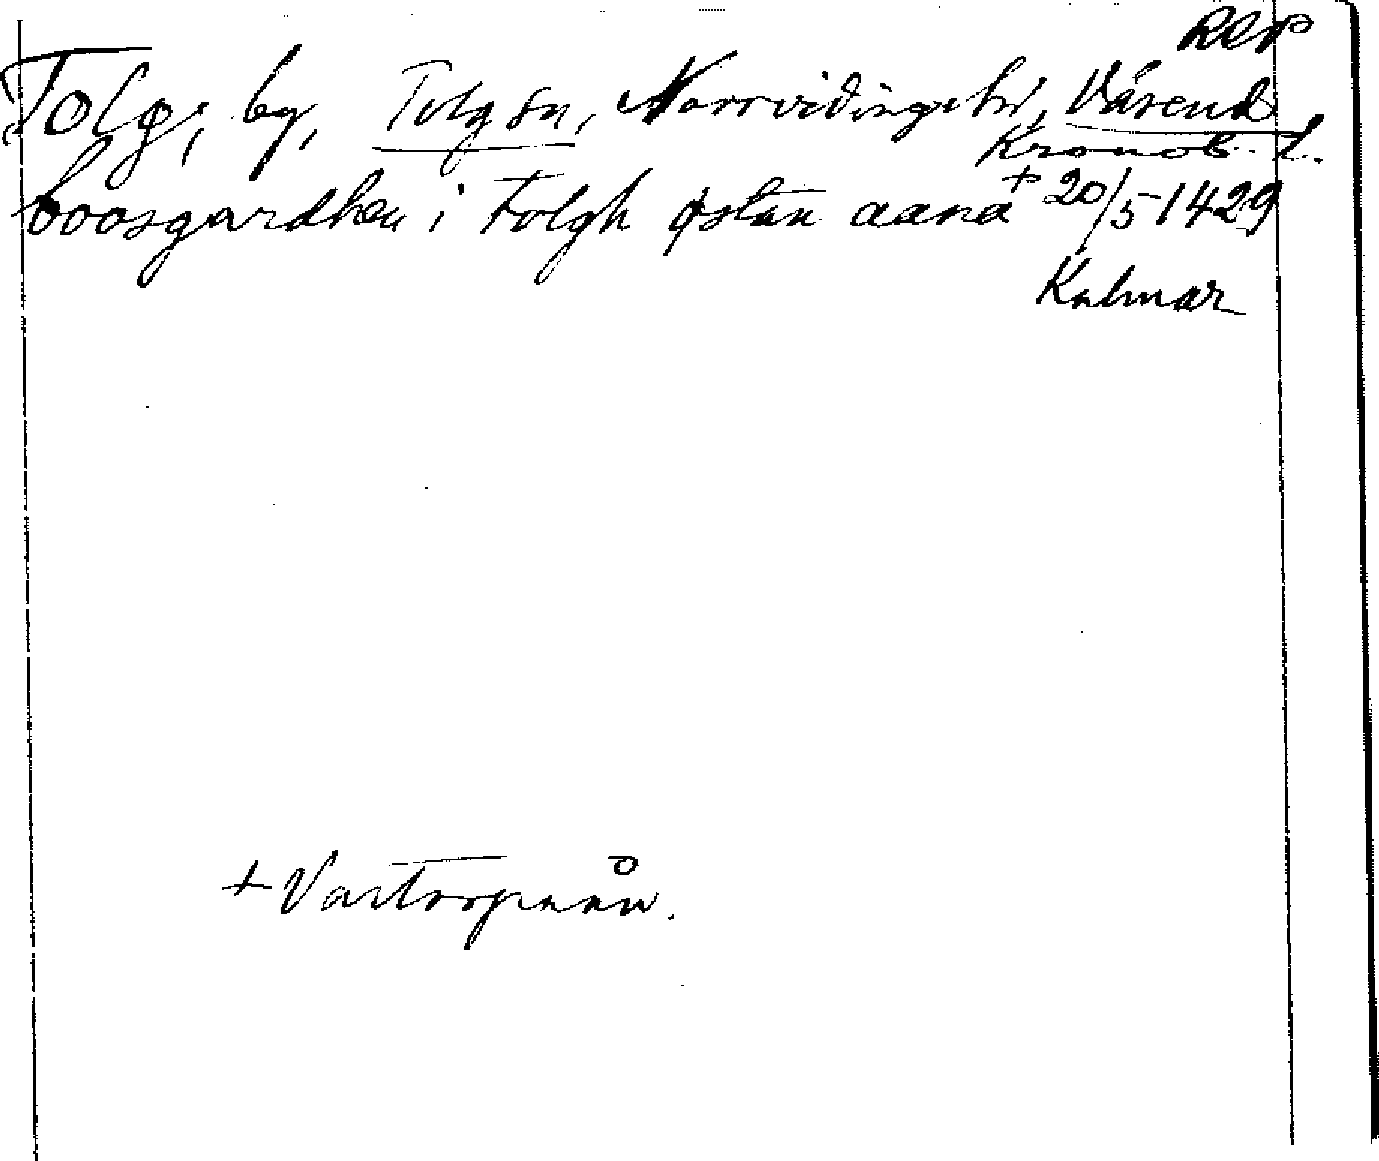 Rep
Tolg, by, Tolg sn, Norrvidinge hd, Värend
Kronob. l.
boosgardhen i Tolgh østan aana + 20/5 1429
Kalmar
+ Vartorpaån.